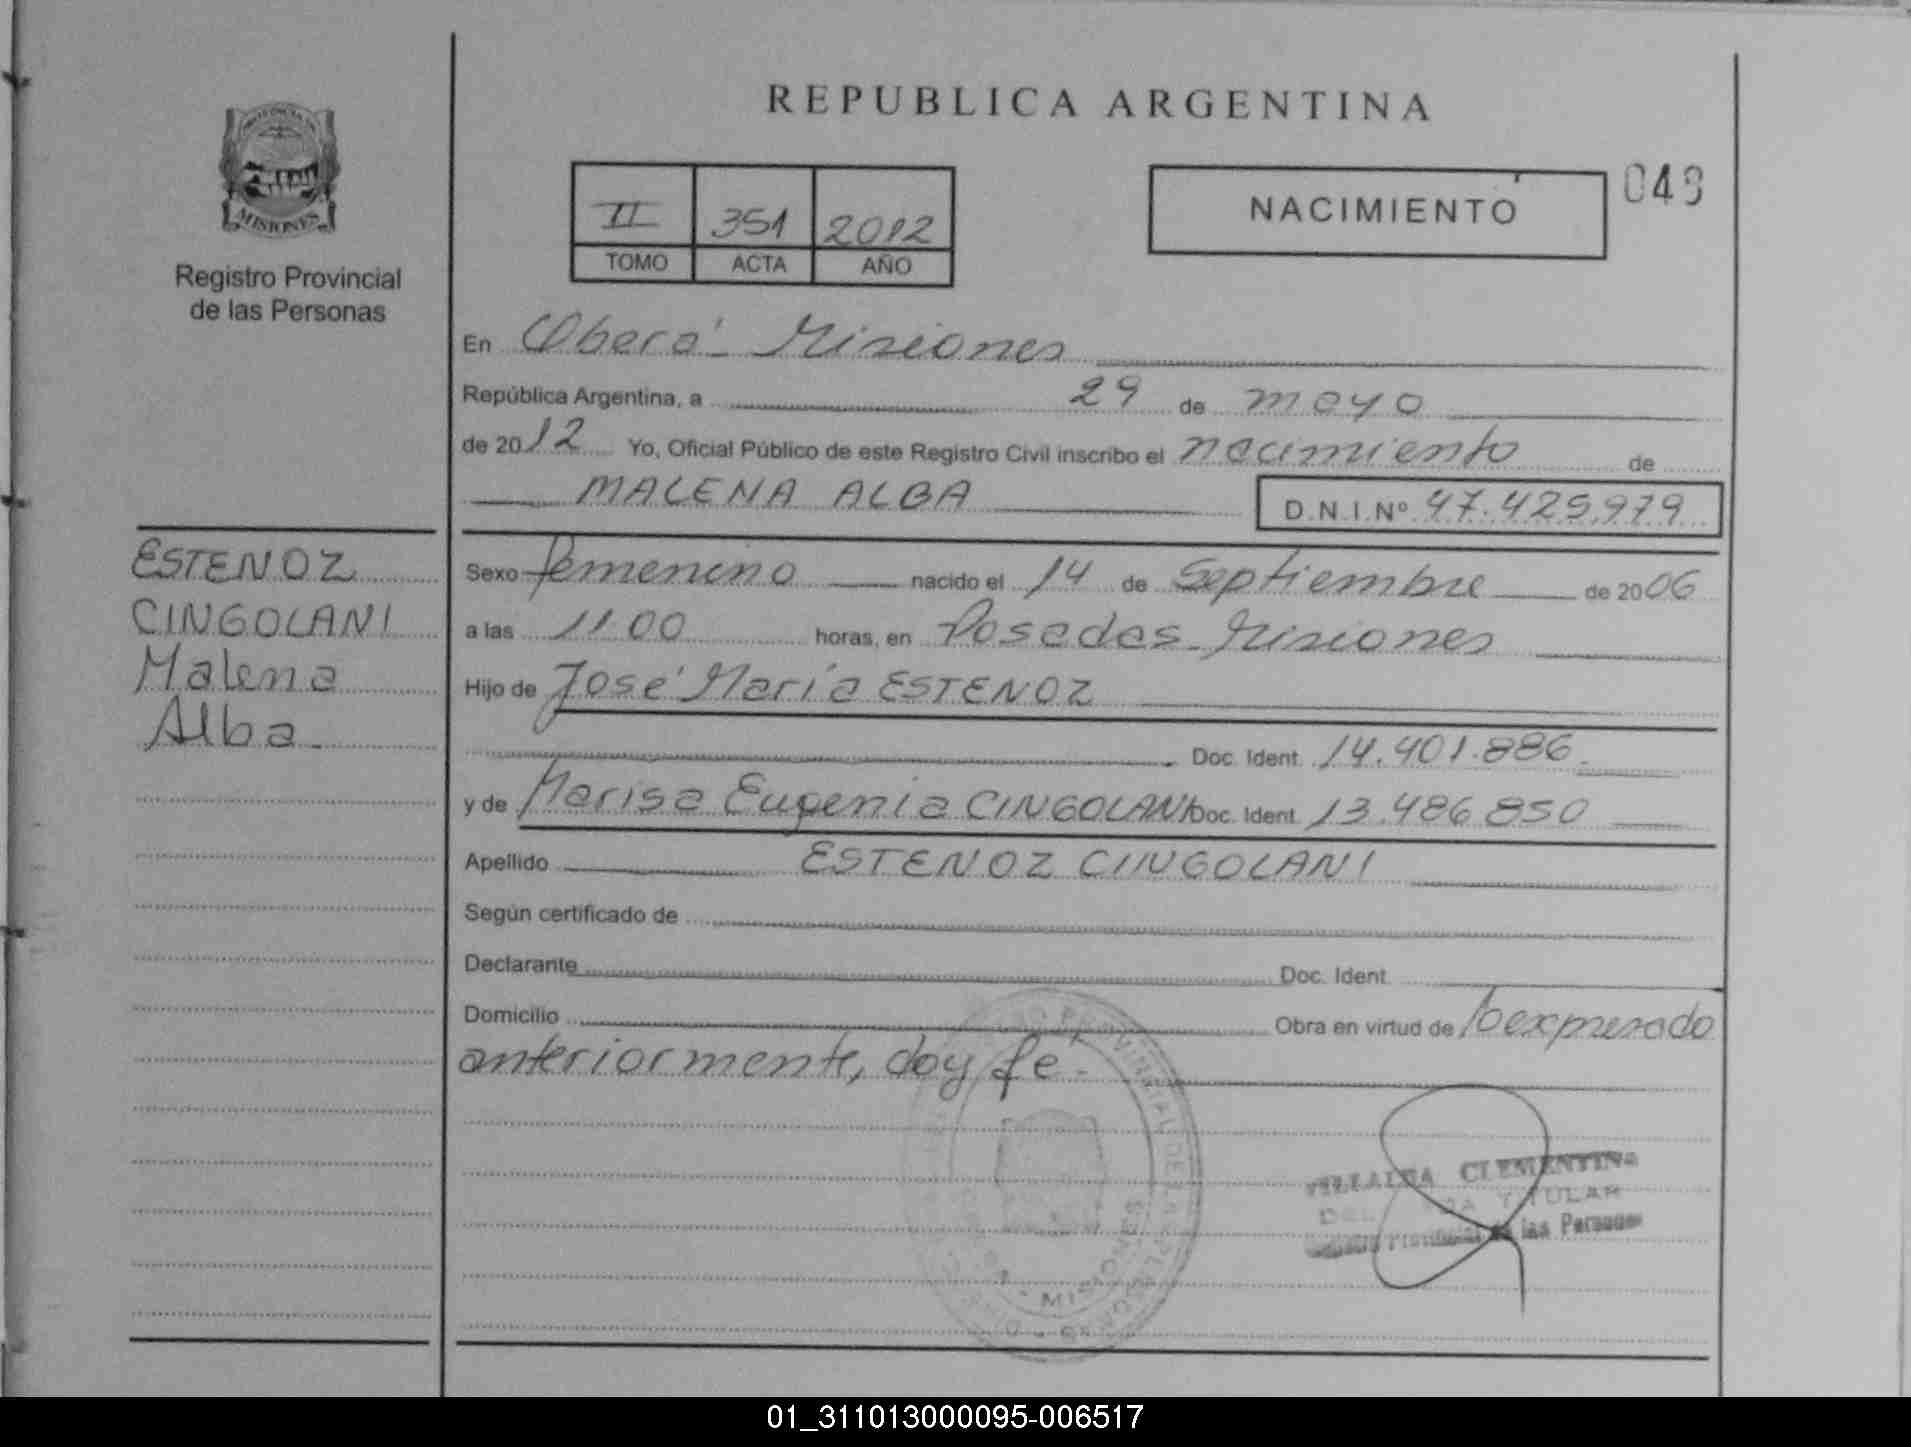 REPUBLICA ARGENTINA
MISIONES
Registro Provincial
de las Personas
II 351 2012
TOMO ACTA AÑO
NACIMIENTO
049
En Oberá - Misiones
República Argentina, a 29 de mayo
de 2012 Yo, Oficial Público de este Registro Civil inscribo el nacimiento de
MALENA ALBA D.N.I.Nº 47.425.979
ESTENOZ
CINGOLANI
Malena
Alba
Sexo femenino nacido el 14 de Septiembre de 2006
a las 11.00 horas, en Posadas - Misiones
Hijo de José María ESTENOZ
Doc. Ident. 14.401.886
y de Marisa Eugenia CINGOLANI Doc. Ident. 13.486.850
Apellido ESTENOZ CINGOLANI
Según certificado de
Declarante Doc. Ident.
Domicilio Obra en virtud de lo expresado
anteriormente, doy fé.
VILLALBA CLEMENTINA
TITULAR
Provincial de las Personas
MISIONES
01_311013000095-006517